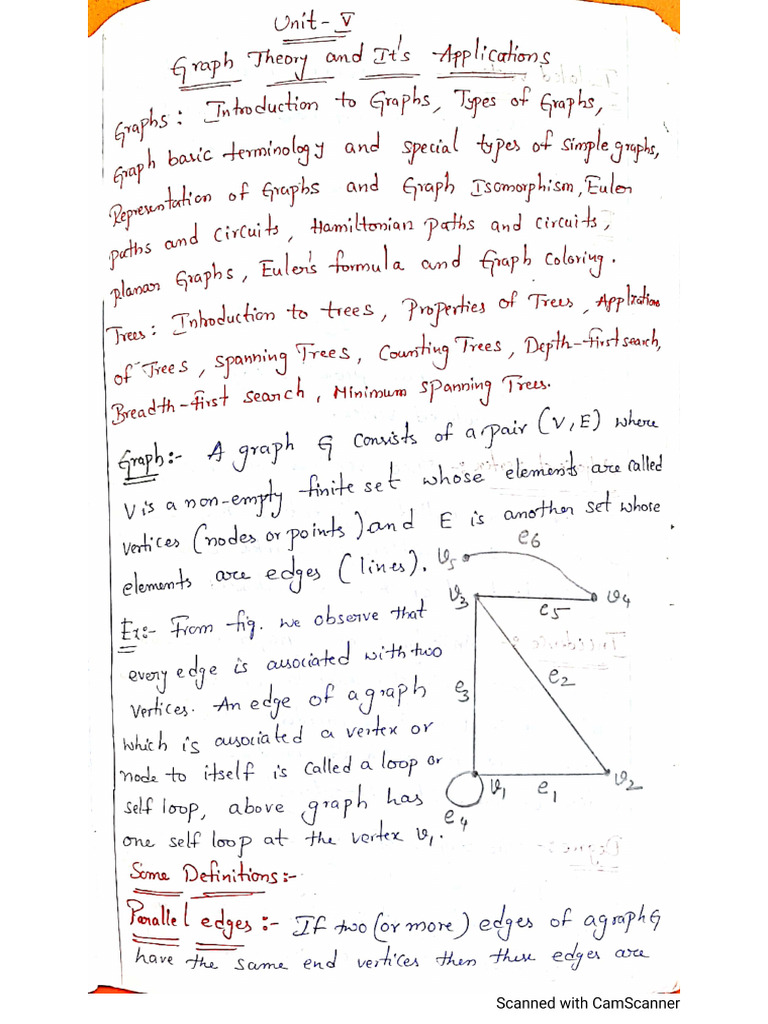 Unit-V
Graph Theory and It's Applications
Graphs: Introduction to Graphs, Types of Graphs,
Graph basic terminology and special types of simple graphs,
Representation of Graphs and Graph Isomorphism, Euler
paths and circuits, Hamiltonian paths and circuits,
planar Graphs, Euler's formula and Graph coloring.
Trees: Introduction to trees, Properties of Trees, Application
of Trees, Spanning Trees, Counting Trees, Depth-first search,
Breadth-first search, Minimum Spanning Trees.
Graph:- A graph G consists of a pair (V, E) where
V is a non-empty finite set whose elements are called
vertices (nodes or points) and E is another set whose
elements are edges (lines).
Ex:- From fig. we observe that
every edge is associated with two
vertices. An edge of a graph
which is associated a vertex or
node to itself is called a loop or
self loop, above graph has
one self loop at the vertex v1.
v5 e6
v3 e5 v4
e3 e2
v1 e1 v2
e4
Some Definitions:-
Parallel edges:- If two (or more) edges of a graph G
have the same end vertices then these edges are
Scanned with CamScanner